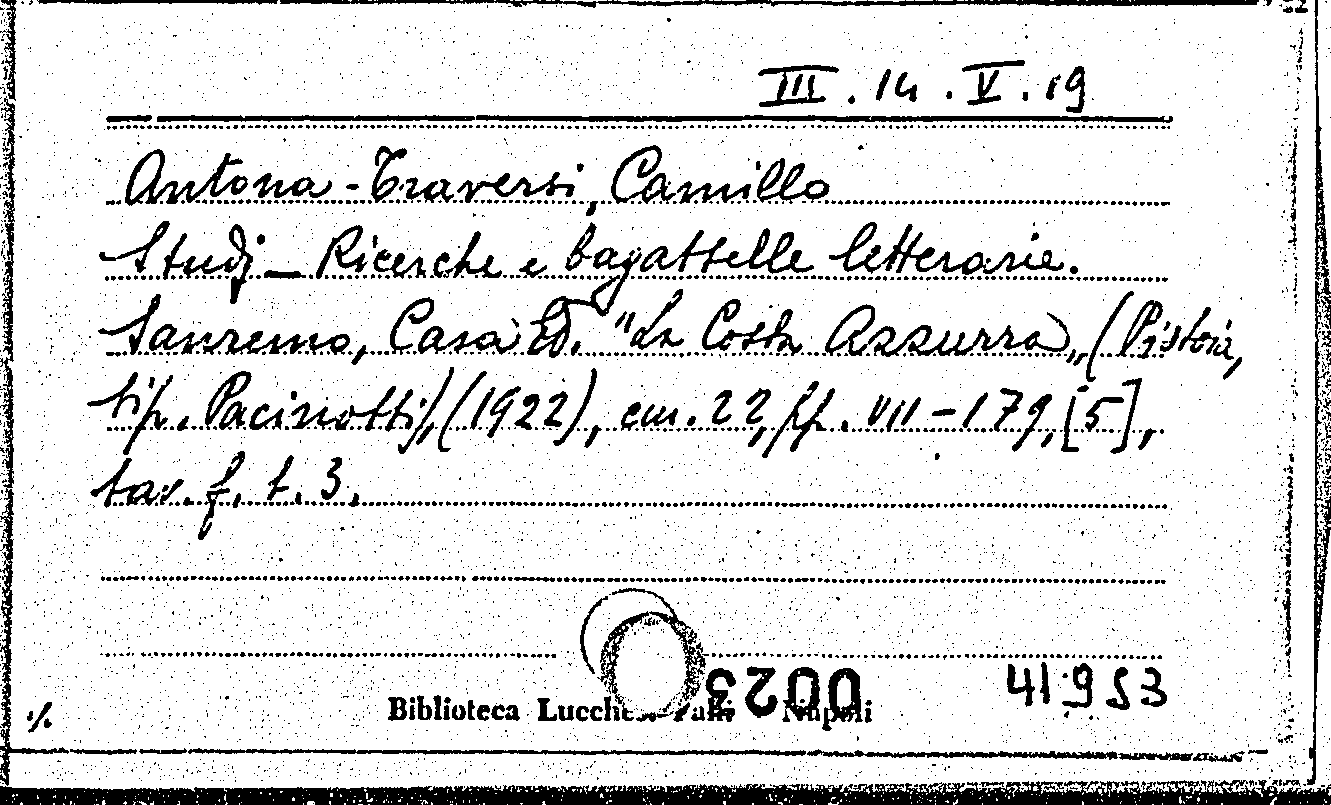 III. 14. V. 19
Antona-Traversi, Camillo
Studj - Ricerche e bagattelle letterarie.
Sanremo, Casa Ed. "La Costa Azzurra„ (Pistoia,
tip. Pacinotti), (1922), cm. 22, pp. VII-179, [5],
tav. f. t. 3.
0023
41953
Biblioteca Lucchesi Palli Napoli
./.